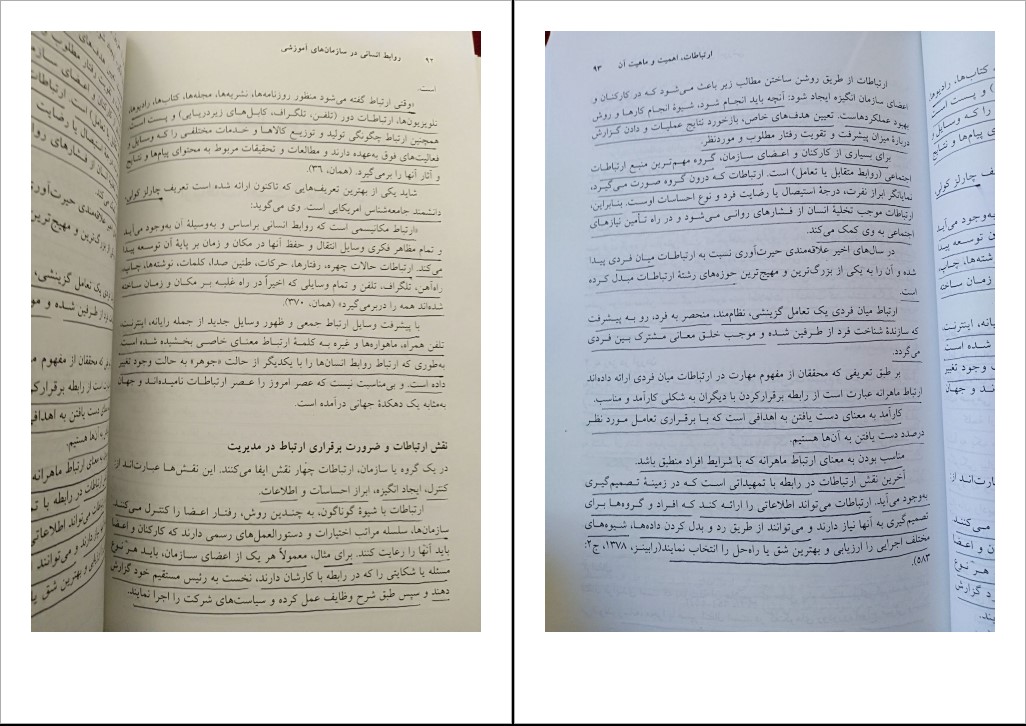 ۹۲ روابط انسانی در سازمان‌های آموزشی
است.
وقتی ارتباط گفته می‌شود منظور روزنامه‌ها، نشریه‌ها، مجله‌ها، کتاب‌ها، رادیوها،
تلویزیون‌ها، ارتباطات دور (تلفن، تلگراف، کابل‌های زیردریایی) و پست است
همچنین ارتباط چگونگی تولید و توزیع کالاها و خدمات مختلفی را که وسایل و
فعالیت‌های فوق به‌عهده دارند و مطالعات و تحقیقات مربوط به محتوای پیام‌ها و نتایج
و آثار آنها را برمی‌گیرد. (همان، ۳۶).
شاید یکی از بهترین تعریف‌هایی که تاکنون ارائه شده است تعریف چارلز کولی،
دانشمند جامعه‌شناس امریکایی است. وی می‌گوید:
«ارتباط مکانیسمی است که روابط انسانی براساس و به‌وسیلهٔ آن به‌وجود می‌آید
و تمام مظاهر فکری وسایل انتقال و حفظ آنها در مکان و زمان بر پایهٔ آن توسعه پیدا
می‌کند. ارتباطات حالات چهره، رفتارها، حرکات، طنین صدا، کلمات، نوشته‌ها، چاپ،
راه‌آهن، تلگراف، تلفن و تمام وسایلی که اخیراً در راه غلبه بر مکان و زمان ساخته
شده‌اند همه را دربرمی‌گیرد» (همان، ۳۷۰).
با پیشرفت وسایل ارتباط جمعی و ظهور وسایل جدید از جمله رایانه، اینترنت،
تلفن همراه، ماهواره‌ها و غیره به کلمهٔ ارتباط معنای خاصی بخشیده شده است
به‌طوری که ارتباط روابط انسان‌ها را با یکدیگر از حالت «جوهر» به حالت وجود تغییر
داده است. و بی‌مناسبت نیست که عصر امروز را عصر ارتباطات نامیده‌اند و جهان
به‌مثابه یک دهکدهٔ جهانی درآمده است.
نقش ارتباطات و ضرورت برقراری ارتباط در مدیریت
در یک گروه یا سازمان، ارتباطات چهار نقش ایفا می‌کنند. این نقش‌ها عبارت‌اند از:
کنترل، ایجاد انگیزه، ابراز احساسات و اطلاعات.
ارتباطات با شیوهٔ گوناگون، به چندین روش، رفتار اعضا را کنترل می‌کنند
سازمان‌ها، سلسله مراتب اختیارات و دستورالعمل‌های رسمی دارند که کارکنان و اعضا
باید آنها را رعایت کنند. برای مثال، معمولاً هر یک از اعضای سازمان، باید هر نوع
مسئله یا شکایتی را که در رابطه با کارشان دارند، نخست به رئیس مستقیم خود گزارش
دهند و سپس طبق شرح وظایف عمل کرده و سیاست‌های شرکت را اجرا نمایند.
ارتباطات، اهمیت و ماهیت آن ۹۳
ارتباطات از طریق روشن ساختن مطالب زیر باعث می‌شود که در کارکنان و
اعضای سازمان انگیزه ایجاد شود: آنچه باید انجام شود، شیوهٔ انجام کارها و روش
بهبود عملکردهاست. تعیین هدف‌های خاص، بازخورد نتایج عملیات و دادن گزارش
دربارهٔ میزان پیشرفت و تقویت رفتار مطلوب و موردنظر.
برای بسیاری از کارکنان و اعضای سازمان، گروه مهم‌ترین منبع ارتباطات
اجتماعی (روابط متقابل یا تعامل) است. ارتباطات که درون گروه صورت می‌گیرد،
نمایانگر ابراز نفرت، درجهٔ استیصال یا رضایت فرد و نوع احساسات اوست. بنابراین،
ارتباطات موجب تخلیهٔ انسان از فشارهای روانی می‌شود و در راه تأمین نیازهای
اجتماعی به وی کمک می‌کند.
در سال‌های اخیر علاقه‌مندی حیرت‌آوری نسبت به ارتباطات میان فردی پیدا
شده و آن را به یکی از بزرگ‌ترین و مهیج‌ترین حوزه‌های رشتهٔ ارتباطات مبدل کرده
است.
ارتباط میان فردی یک تعامل گزینشی، نظام‌مند، منحصر به فرد، رو به پیشرفت
که سازندهٔ شناخت فرد از طرفین شده و موجب خلق معانی مشترک بین فردی
می‌گردد.
بر طبق تعریفی که محققان از مفهوم مهارت در ارتباطات میان فردی ارائه داده‌اند
ارتباط ماهرانه عبارت است از رابطه برقرارکردن با دیگران به شکلی کارآمد و مناسب.
کارآمد به معنای دست یافتن به اهدافی است که با برقراری تعامل مورد نظر
درصدد دست یافتن به آن‌ها هستیم.
مناسب بودن به معنای ارتباط ماهرانه که با شرایط افراد منطبق باشد.
آخرین نقش ارتباطات در رابطه با تمهیداتی است که در زمینهٔ تصمیم‌گیری
به‌وجود می‌آید. ارتباطات می‌تواند اطلاعاتی را ارائه کند که افراد و گروه‌ها برای
تصمیم‌گیری به آنها نیاز دارند و می‌توانند از طریق رد و بدل کردن داده‌ها، شیوه‌های
مختلف اجرایی را ارزیابی و بهترین شق یا راه‌حل را انتخاب نمایند(رابینز، ۱۳۷۸، ج۲:
۵۸۳).